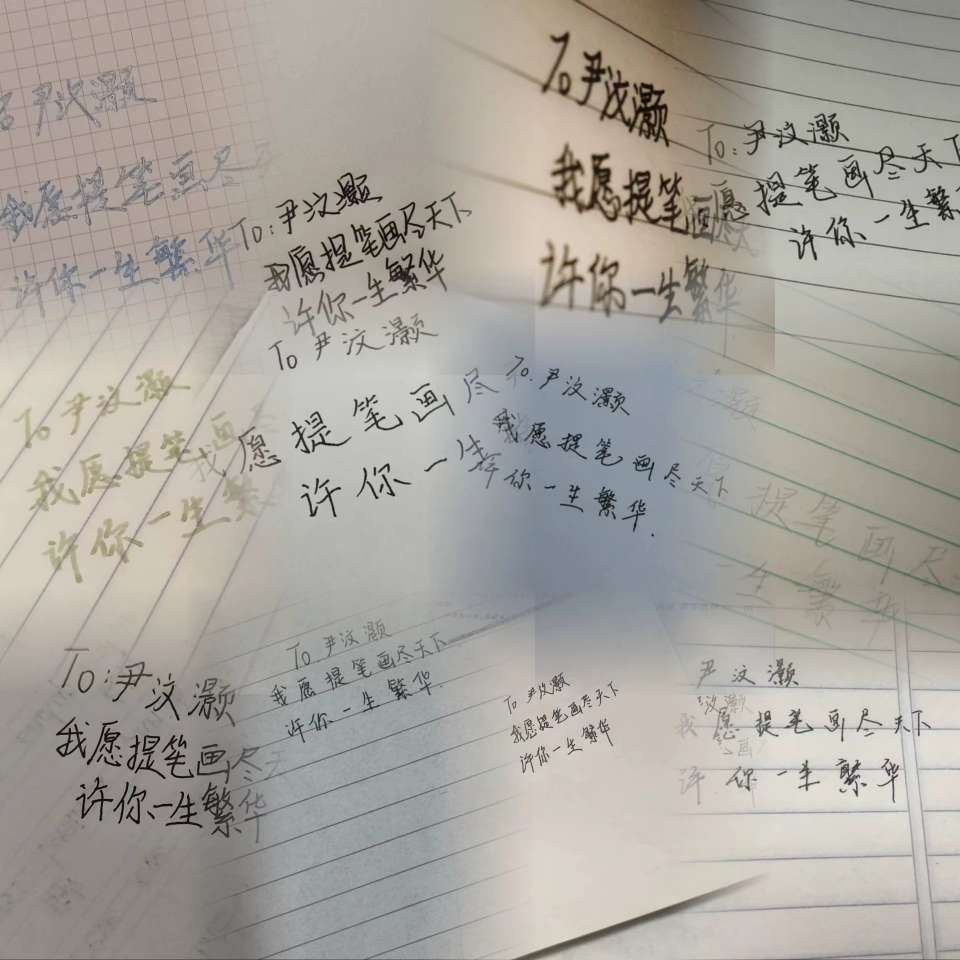 尹汶灏
我愿提笔画尽
许你一生繁华
To:尹汶灏
我愿提笔画尽天下
许你一生繁华
To尹汶灏
我愿提笔画
许你一生繁华
To:尹汶灏
愿提笔画尽天下
许你一生繁
To尹汶灏
我愿提笔画
许你一生繁
To尹汶灏
我愿提笔画尽
许你一生
To.尹汶灏
我愿提笔画尽天下
许你一生繁华.
灏
提笔画尽
一生繁华
To:尹汶灏
我愿提笔画尽天
许你一生繁华
To尹汶灏
我愿提笔画尽天下
许你一生繁华.
To尹汶灏
我愿提笔画尽天下
许你一生繁华
尹汶灏
汶灏
我愿提笔画尽天下
许你一生繁华